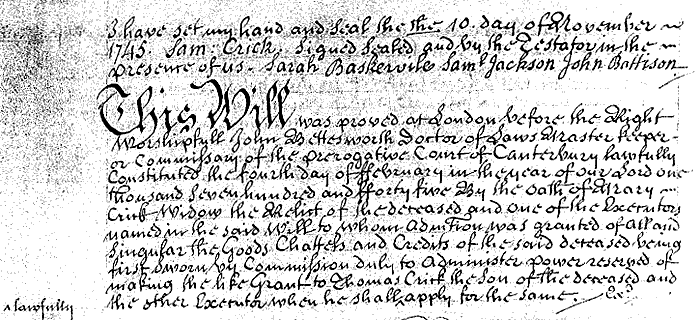 I have set my hand and seal the the 10. day of November
1745. Sam: Crick. Signed Sealed and by the Testator in the
presence of us. Sarah Baskervile Saml Jackson John Battison
This Will was proved at London before the Right
Worshipfull John Bettesworth Doctor of Laws Master keeper
or Commissary of the Prerogative Court of Canterbury lawfully
Constituted the fourth day of ffebruary in the year of our Lord one
thousand Seven hundred and fforty five By the Oath of Mary
Crick Widow the Relict of the deceased and one of the Executors
named in the said Will to whom Admcon was granted of All and
Singular the Goods Chattels and Credits of the said deceased being
first sworn by Commission duly to Administer power reserved of
making the like Grant to Thomas Crick the Son of the deceased and
^ lawfully
the other Executor when he shall ^ apply for the same.